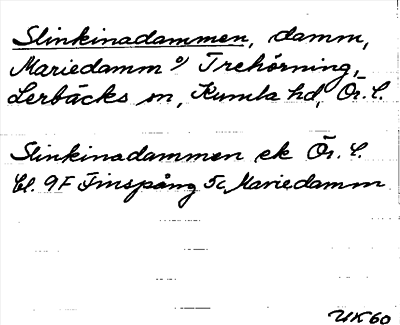 Slinkinadammen, damm,
Mariedamm o/ Trehörning,
Lerbäcks sn, Kumla hd, Ör. l.
Slinkinadammen ek Ör. l.
bl. 9F Finspång 5c Mariedamm
UK60